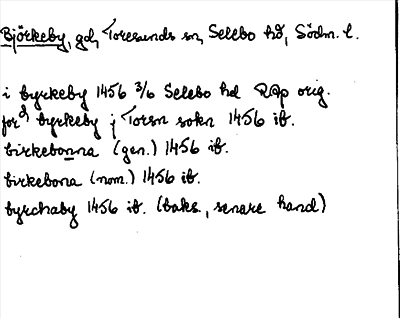 Björkeby, gd, Toresunds sn, Selebo hd, Södm. l.
i byrkeby 1456 3/6 Selebo hd RAp orig.
for^d byrkeby j Torsn sokn 1456 ib.
birkebonna (gen.) 1456 ib.
birkebona (nom.) 1456 ib.
byrchaby 1456 ib. (baks., senare hand)